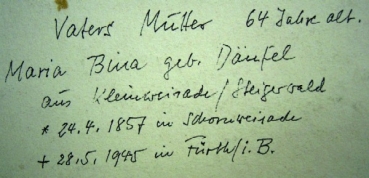 Vaters Mutter 64 Jahre alt.
Maria Bina geb. Däufel
aus Kleinweisade/Steigerwald
* 24.4. 1857 in Schornweisade
+ 28.5. 1945 in Fürth/i. B.